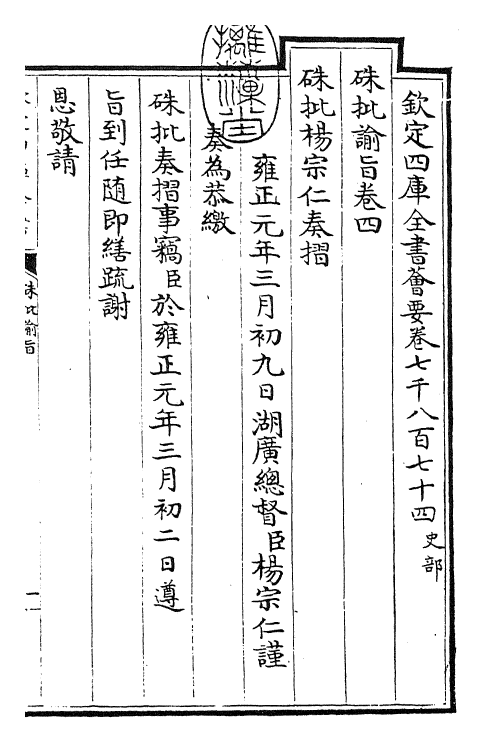 欽定四庫全書薈要卷七千八百七十四史部
硃批諭旨卷四
硃批楊宗仁奏摺
雍正元年三月初九日湖廣總督臣楊宗仁謹
奏為恭繳
硃批奏摺事竊臣於雍正元年三月初二日遵
旨到任随即繕疏謝
恩敬請
硃批諭旨
一